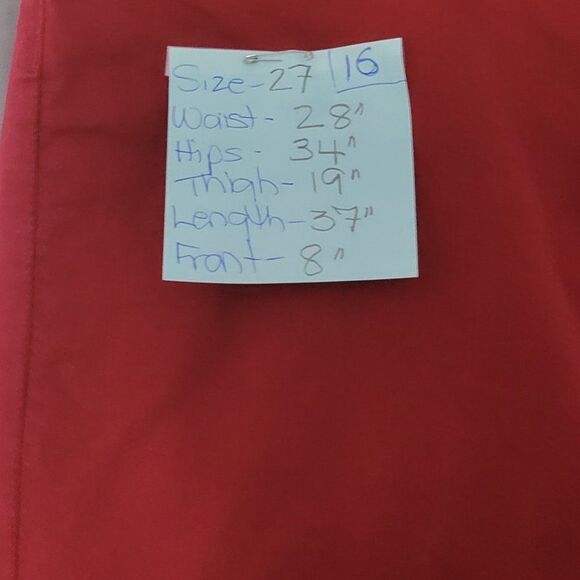 Size-27 16
Waist- 28"
Hips- 34"
Thigh- 19"
Length-37"
Front- 8"